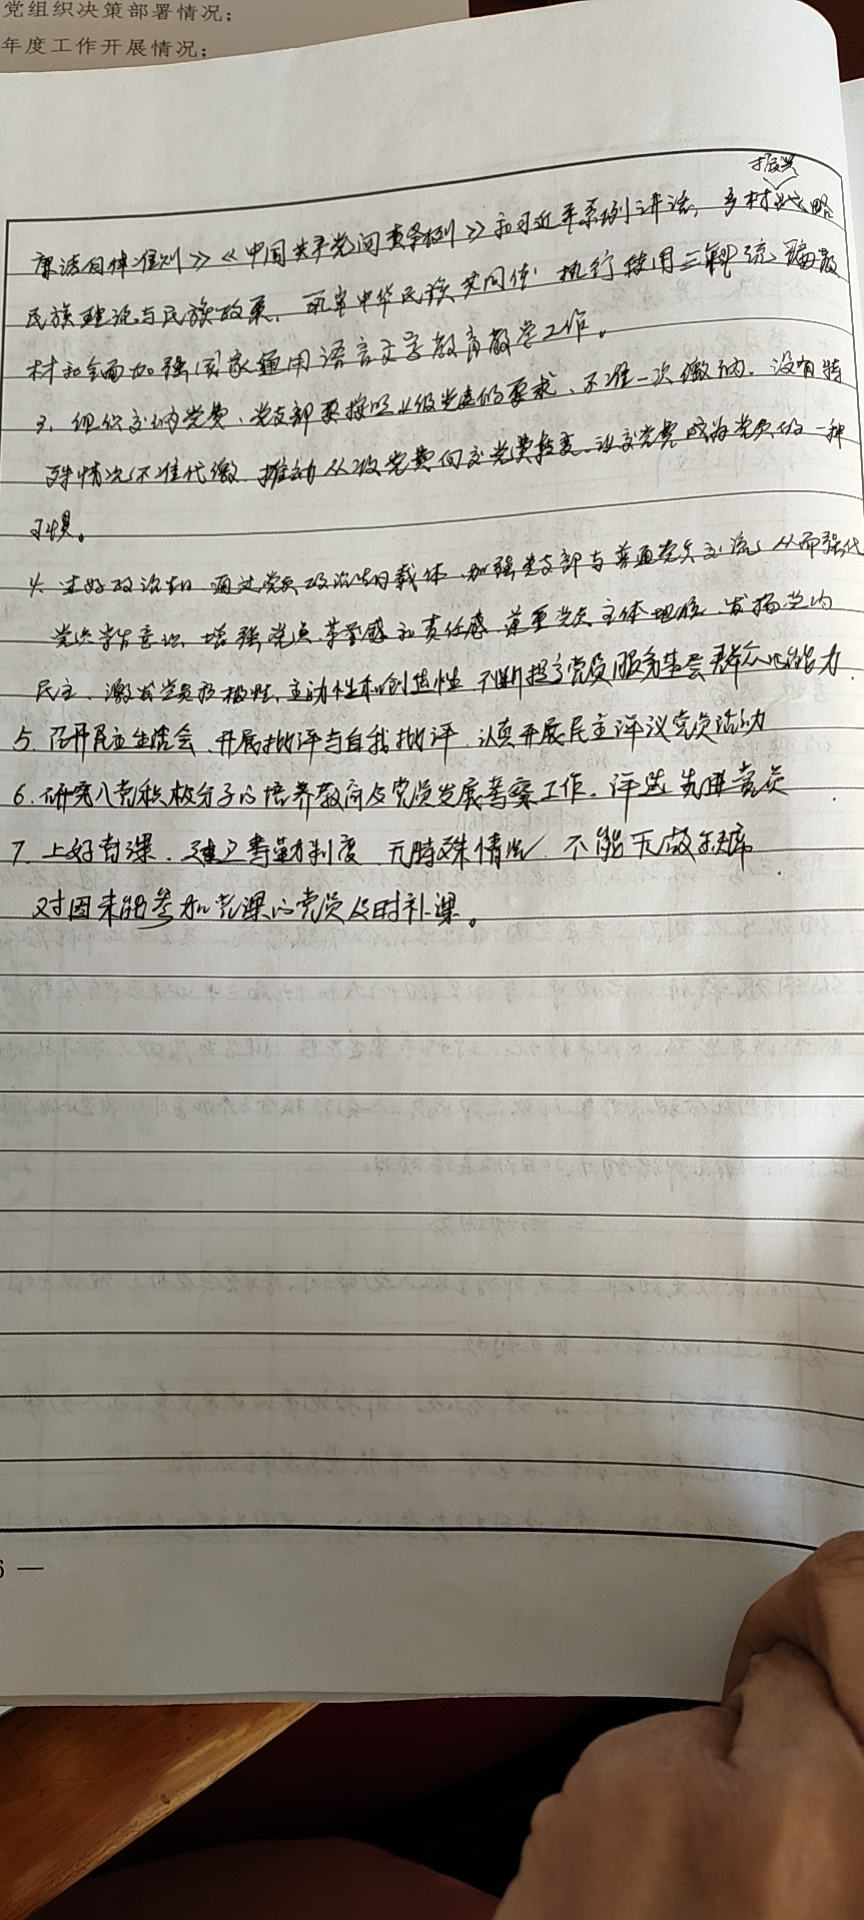 党组织决策部署情况；
年度工作开展情况；
振兴
廉洁自律准则》《中国共产党问责条例》和习近平系列讲话，乡村战略
民族理论与民族政策、筑牢中华民族共同体 执行使用三科统编教
材和全面加强国家通用语言文字教育教学工作。
3、组织交纳党费、党支部要按照上级党委的要求、不准一次缴纳．没有特
殊情况不准代缴．推动从收党费向交党费转变．让交党费成为党员的一种
习惯。
4、过好政治生日 通过党员政治生日载体．加强党支部与普通党员交流，从而强化
党员学习意识 增强党员荣誉感和责任感．尊重党员主体地位．发扬党内
民主、激发党员积极性、主动性和创造性 不断提高党员服务群众的能力．
5．召开民主生活会．开展批评与自我批评．认真开展民主评议党员活动
6．研究入党积极分子的培养教育及党员发展考察工作．评选先进党员
7．上好党课．建立考勤制度 无特殊情况．不能无故缺席
对因未能参加党课的党员及时补课。
6 —